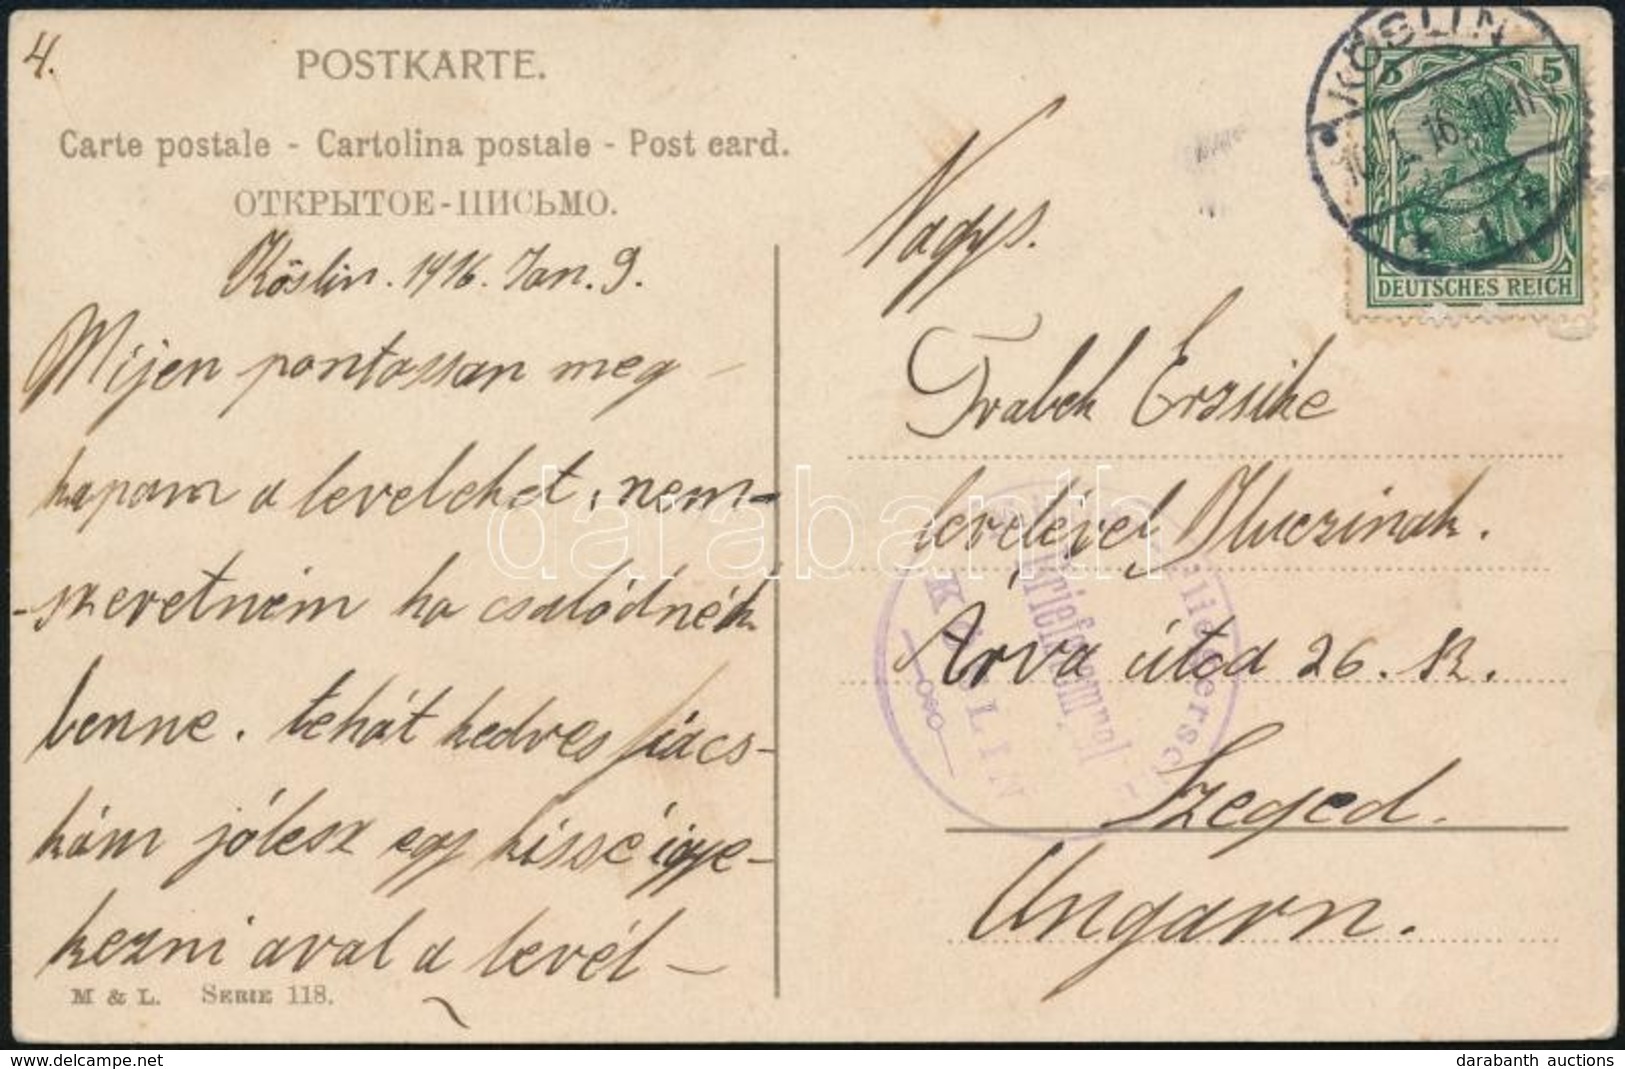 4.
POSTKARTE.
Carte postale - Cartolina postale - Post card.
ОТКРЫТОЕ-ПИСЬМО.
Köslin. 1916. Jan. 9.
Mijen pontossan meg-
kapam a leveleket, nem-
-szeretném ha csalódnék
benne. tehát kedves fiács-
kám jólesz egy kissé igye-
kezni aval a levél-
M & L. SERIE 118.
Nagys.
Trabek Erzsike
levelével
Árva útca 26. sz.
Szeged.
Ungarn.
KÖSLIN
16. 10-11
* 1 *
5 5
DEUTSCHES REICH
Fliegersch
Briefstempel
KÖSLIN
darabanth
darabanth auctions
www.delcampe.net